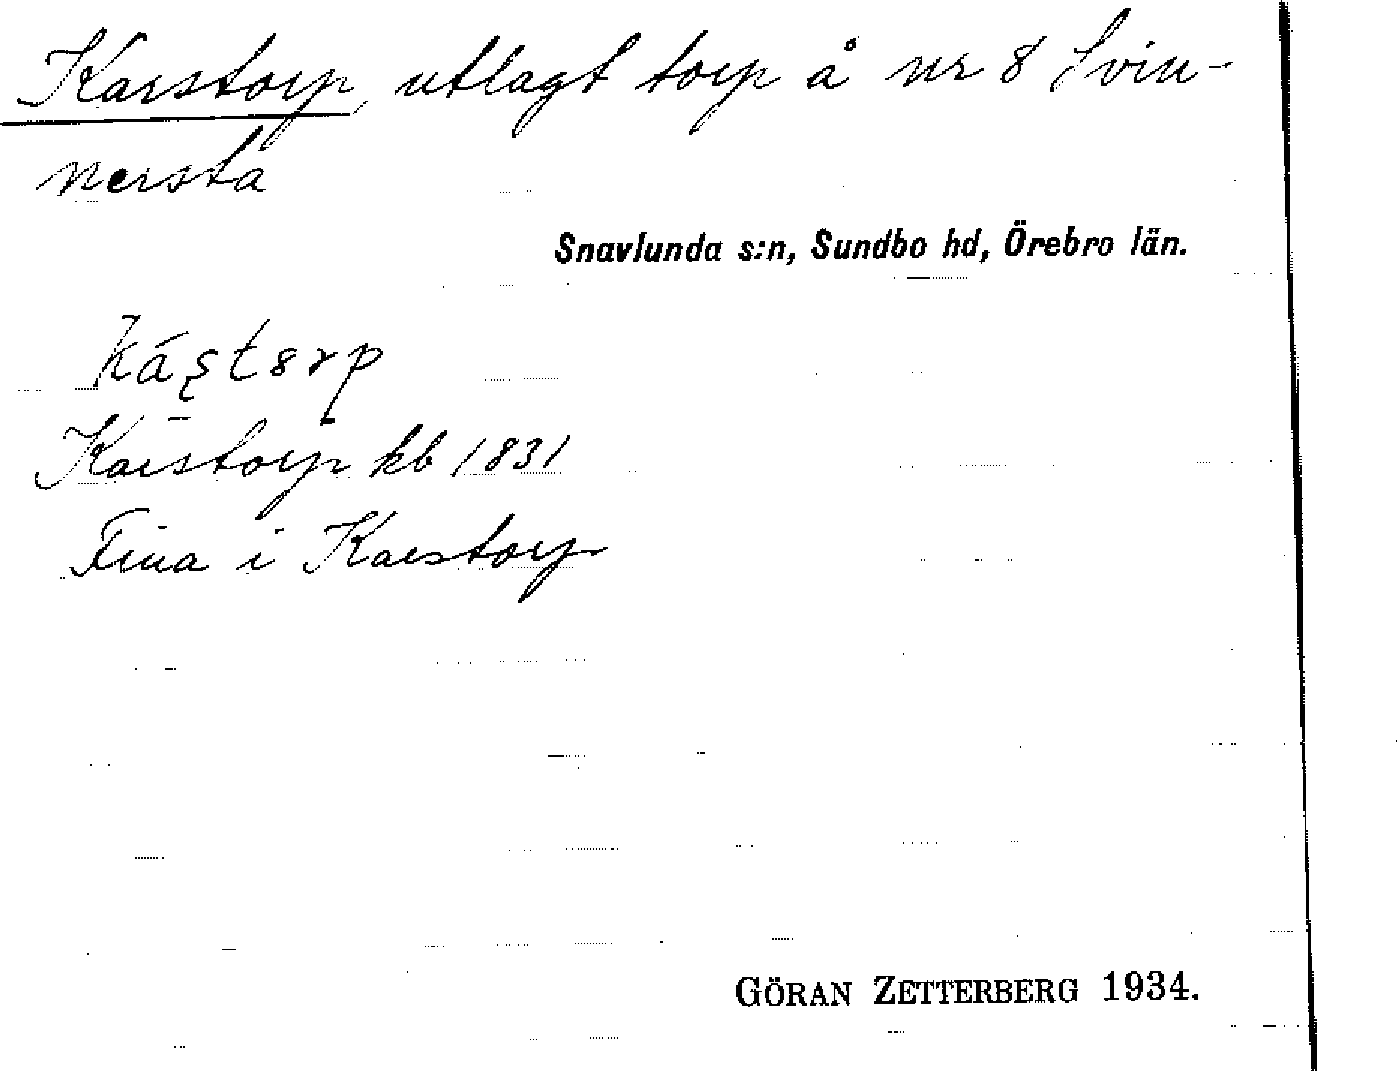 Karstorp, utlagt torp å nr 8 Svin-
nersta
Snavlunda s:n, Sundbo hd, Örebro län.
Karstorp kb 1831
Fina i Karstorp
GÖRAN ZETTERBERG 1934.